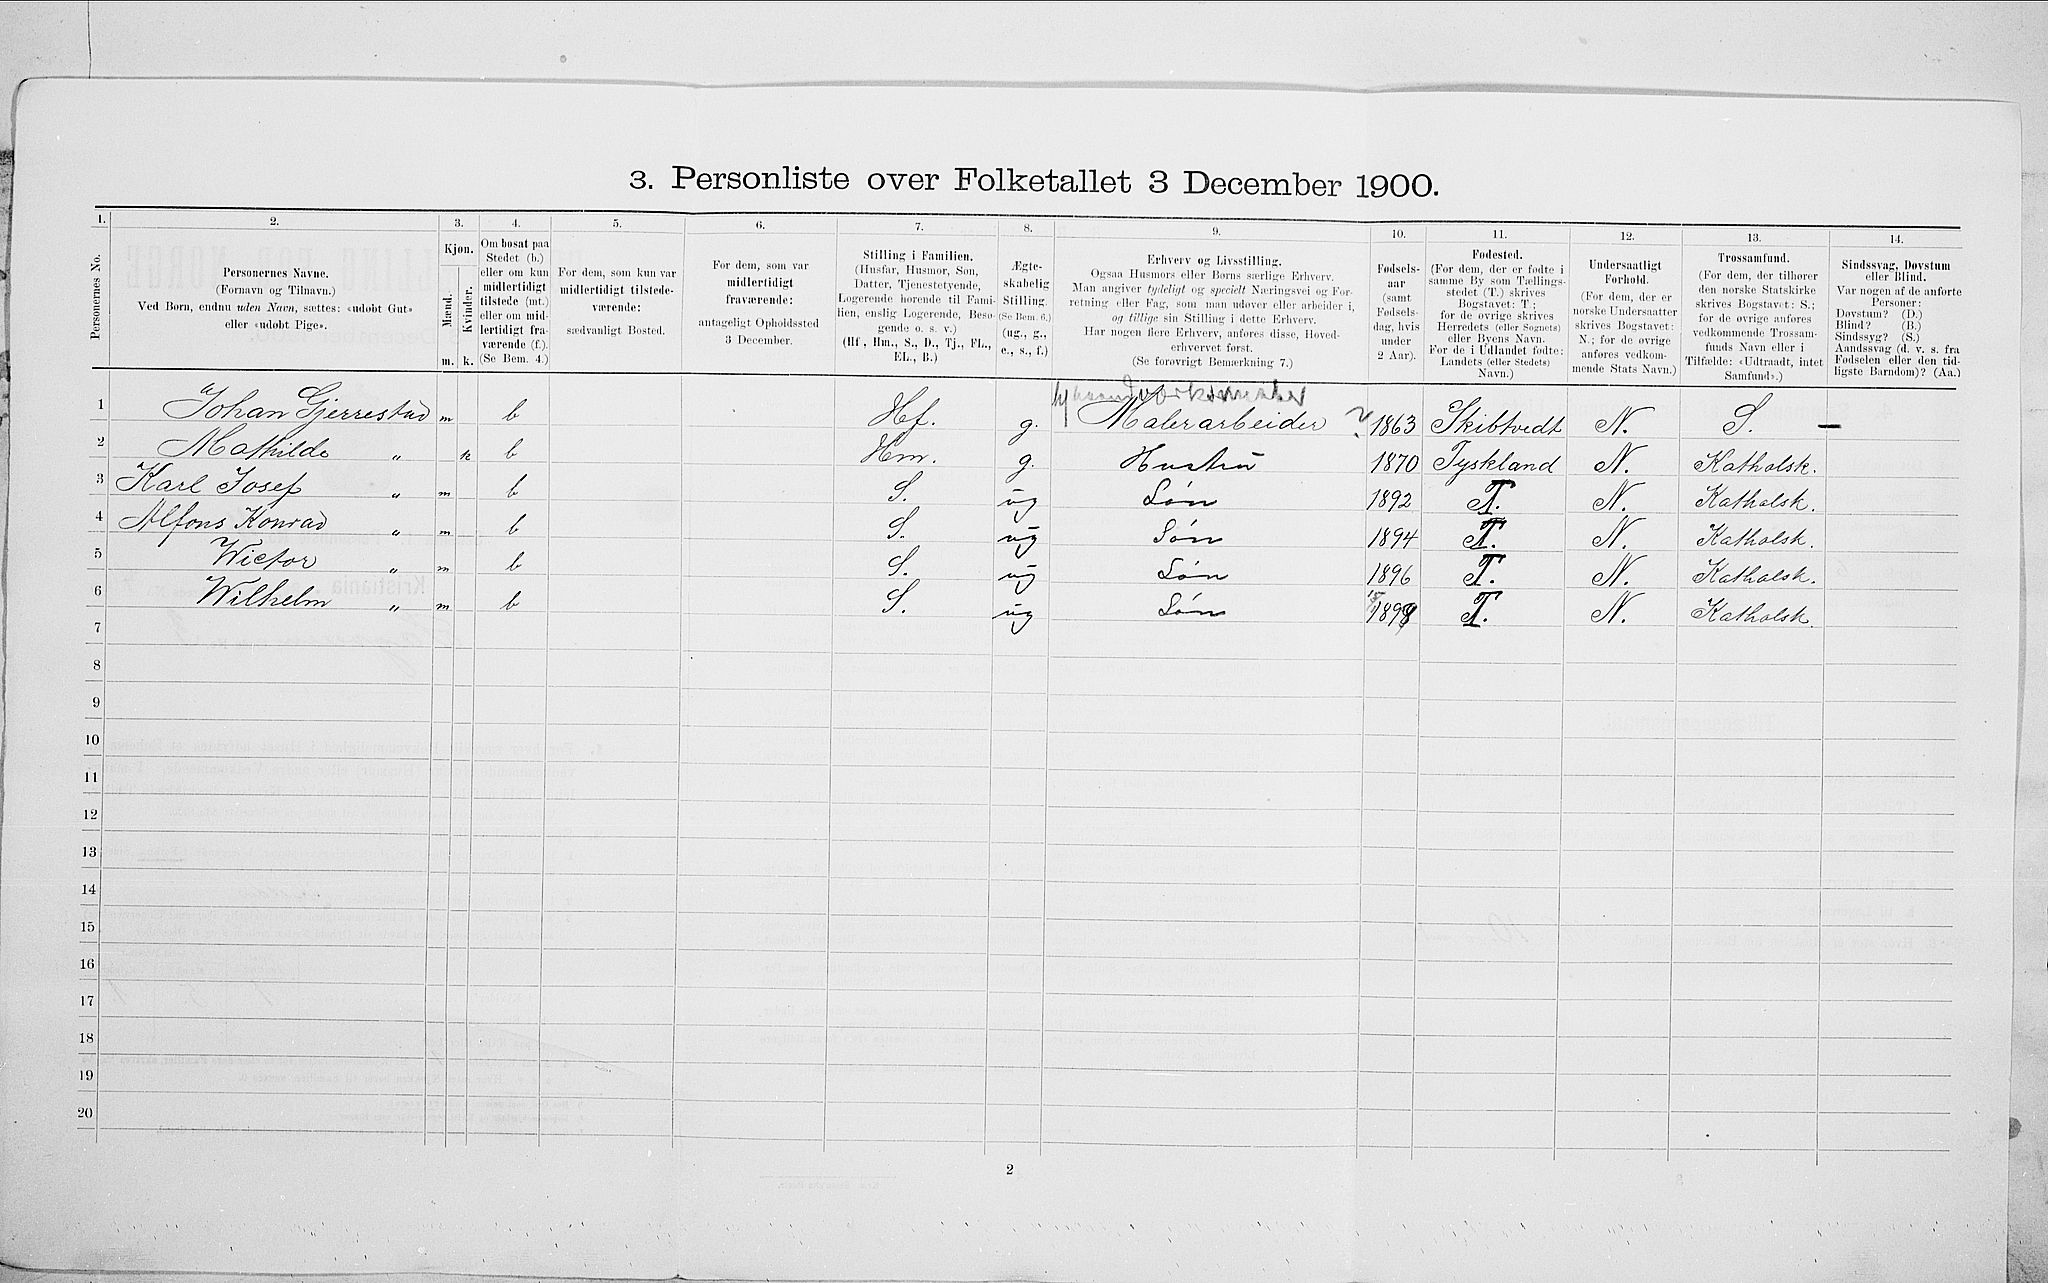 3. Personliste over Folketallet 3 December 1900.
1. 2. 3. 4. 5. 6. 7. 8. 9. 10. 11. 12. 13. 14.
Personernes No.
Personernes Navne.
(Fornavn og Tilnavn.)
Ved Børn, endnu uden Navn, sættes: «udøbt Gut»
eller «udøbt Pige».
Kjøn.
Mænd.
Kvinder.
m. k.
Om bosat paa
Stedet (b.)
eller om kun
midlertidigt
tilstede (mt.)
eller om mid-
lertidigt fra-
værende (f.).
(Se Bem. 4.)
For dem, som kun var
midlertidigt tilstede-
værende:
sædvanligt Bosted.
For dem, som var
midlertidigt
fraværende:
antageligt Opholdssted
3 December.
Stilling i Familien.
(Husfar, Husmor, Søn,
Datter, Tjenestetyende,
Logerende hørende til Fami-
lien, enslig Logerende, Besø-
gende o. s. v.)
(Hf., Hm., S., D., Tj., FL.,
EL., B.)
Ægte-
skabelig
Stilling.
(Se Bem. 6.)
(ug., g.,
e., s., f.)
Erhverv og Livsstilling.
Ogsaa Husmors eller Børns særlige Erhverv.
Man angiver tydeligt og specielt Næringsvei og For-
retning eller Fag, som man udøver eller arbeider i,
og tillige sin Stilling i dette Erhverv.
Har nogen flere Erhverv, anføres disse, Hoved-
erhvervet først.
(Se forøvrigt Bemærkning 7.)
Fødsels-
aar
(samt
Fødsels-
dag, hvis
under
2 Aar).
Fødested.
(For dem, der er fødte i
samme By som Tællings-
stedet (T.) skrives
Bogstavet: T.;
for de øvrige skrives
Herredets (eller Sognets)
eller Byens Navn.
For de i Udlandet fødte:
Landets (eller Stedets)
Navn.)
Undersaatligt
Forhold.
(For dem, der er
norske Undersaatter
skrives Bogstavet:
N.; for de øvrige
anføres vedkom-
mende Stats Navn.)
Trossamfund.
(For dem, der tilhører
den norske Statskirke
skrives Bogstavet: S.;
for de øvrige anføres
vedkommende Trossam-
funds Navn eller i
Tilfælde: «Udtraadt, intet
Samfund».)
Sindssvag, Døvstum
eller Blind.
Var nogen af de anførte
Personer:
Døvstum? (D.)
Blind? (B.)
Sindssyg? (S.)
Aandssvag (d. v. s. fra
Fødselen eller den tid-
ligste Barndom)? (Aa.)
1 Johan Gjerrestad m b Hf. g. Malerarbeider ? 1863 Skibtvedt N. S. —
2 Mathilde „ k b Hm. g. Hustru 1870 Tyskland N. Katholsk.
3 Karl Josef „ m b S. ug Søn 1892 T. N. Katholsk.
4 Alfons Konrad „ m b S. ug Søn 1894 T. N. Katholsk.
5 Wictor „ m b S. ug Søn 1896 T. N. Katholsk.
6 Wilhelm „ m b S. ug Søn 1898 T. N. Katholsk.
7
8
9
10
11
12
13
14
15
16
17
18
19
20
2